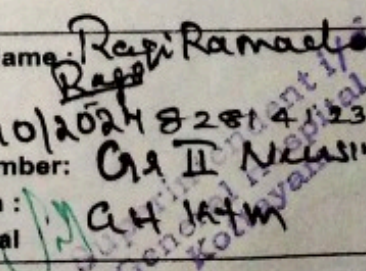 ame: Raji Ramach
Raji
10/2024 828141 23
mber: Gr II Nursi
: GH Ktm
al
Superintendent i/c
General Hospital
Kottayam